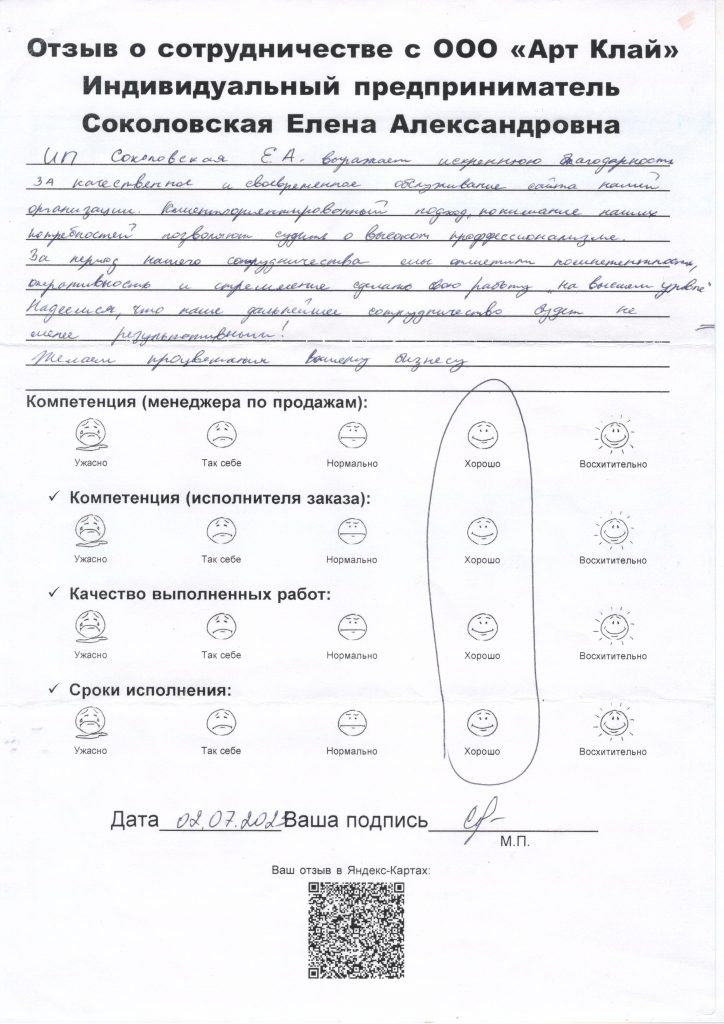 Отзыв о сотрудничестве с ООО «Арт Клай»
Индивидуальный предприниматель
Соколовская Елена Александровна
ИП Соколовская Е.А. выражает искреннюю благодарность
за качественное и своевременное обслуживание сайта нашей
организации. Клиентоориентированный подход, понимание наших
потребностей позволяют судить о высоком профессионализме.
За период нашего сотрудничества мы отметили компетентность,
оперативность и стремление сделать свою работу „на высшем уровне"
Надеемся, что наше дальнейшее сотрудничество будет не
менее результативным!
Желаем процветания вашему бизнесу
Компетенция (менеджера по продажам):
Ужасно Так себе Нормально Хорошо Восхитительно
✓ Компетенция (исполнителя заказа):
Ужасно Так себе Нормально Хорошо Восхитительно
✓ Качество выполненных работ:
Ужасно Так себе Нормально Хорошо Восхитительно
✓ Сроки исполнения:
Ужасно Так себе Нормально Хорошо Восхитительно
Дата 02.07. Ваша подпись
М.П.
Ваш отзыв в Яндекс-Картах: